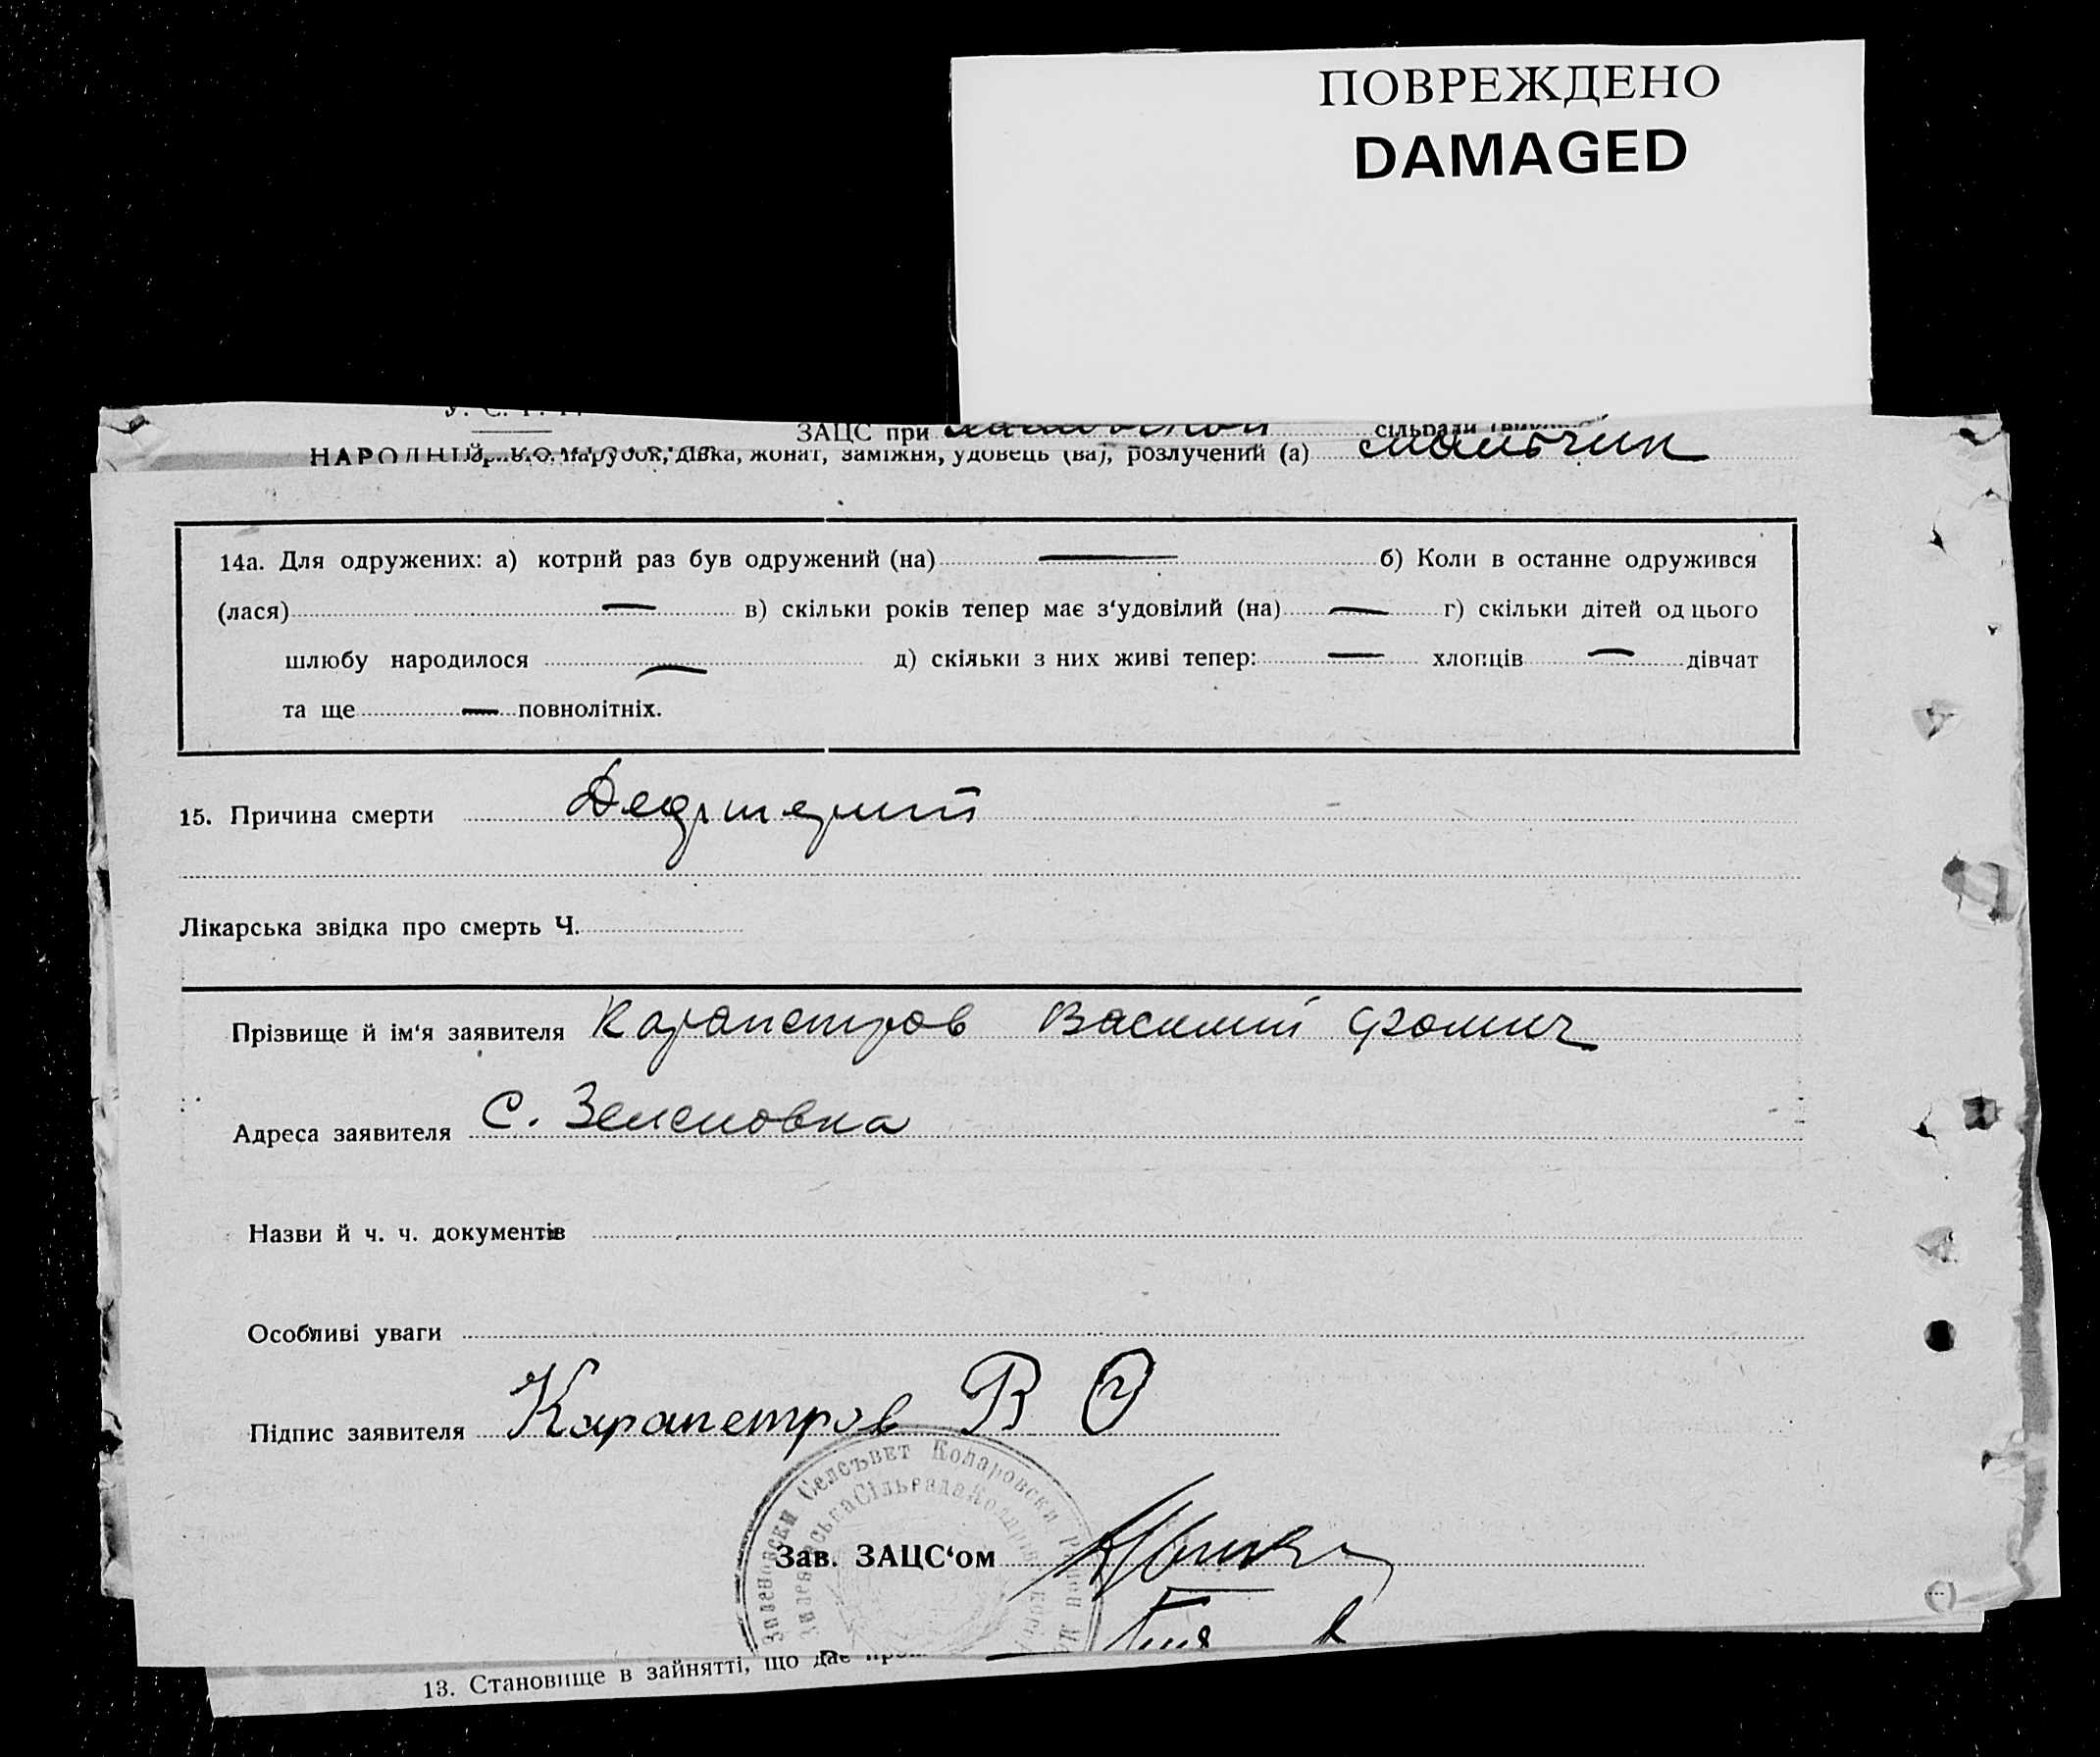 ПОВРЕЖДЕНО
DAMAGED
ЗАЦС при
дівка, жонат, заміжня, удовець (ва), розлучений (а) мальчик
14а. Для одружених: а) котрий раз був одружений (на) — б) Коли в останне одружився
(лася) — в) скільки років тепер має з‘удовілий (на) — г) скільки дітей од цього
шлюбу народилося — д) скільки з них живі тепер: — хлопців — дівчат
та ще — повнолітніх.
15. Причина смерти
Лікарська звідка про смерть Ч.
Прізвище й ім‘я заявителя Карапетров Василий Фомич
Адреса заявителя С. Зеленовка
Назви й ч. ч. документів
Особливі уваги
Підпис заявителя Карапетров В Ф
Селсъвет Коларовски
Зав. ЗАЦС‘ом
13. Становище в зайнятті, що дає